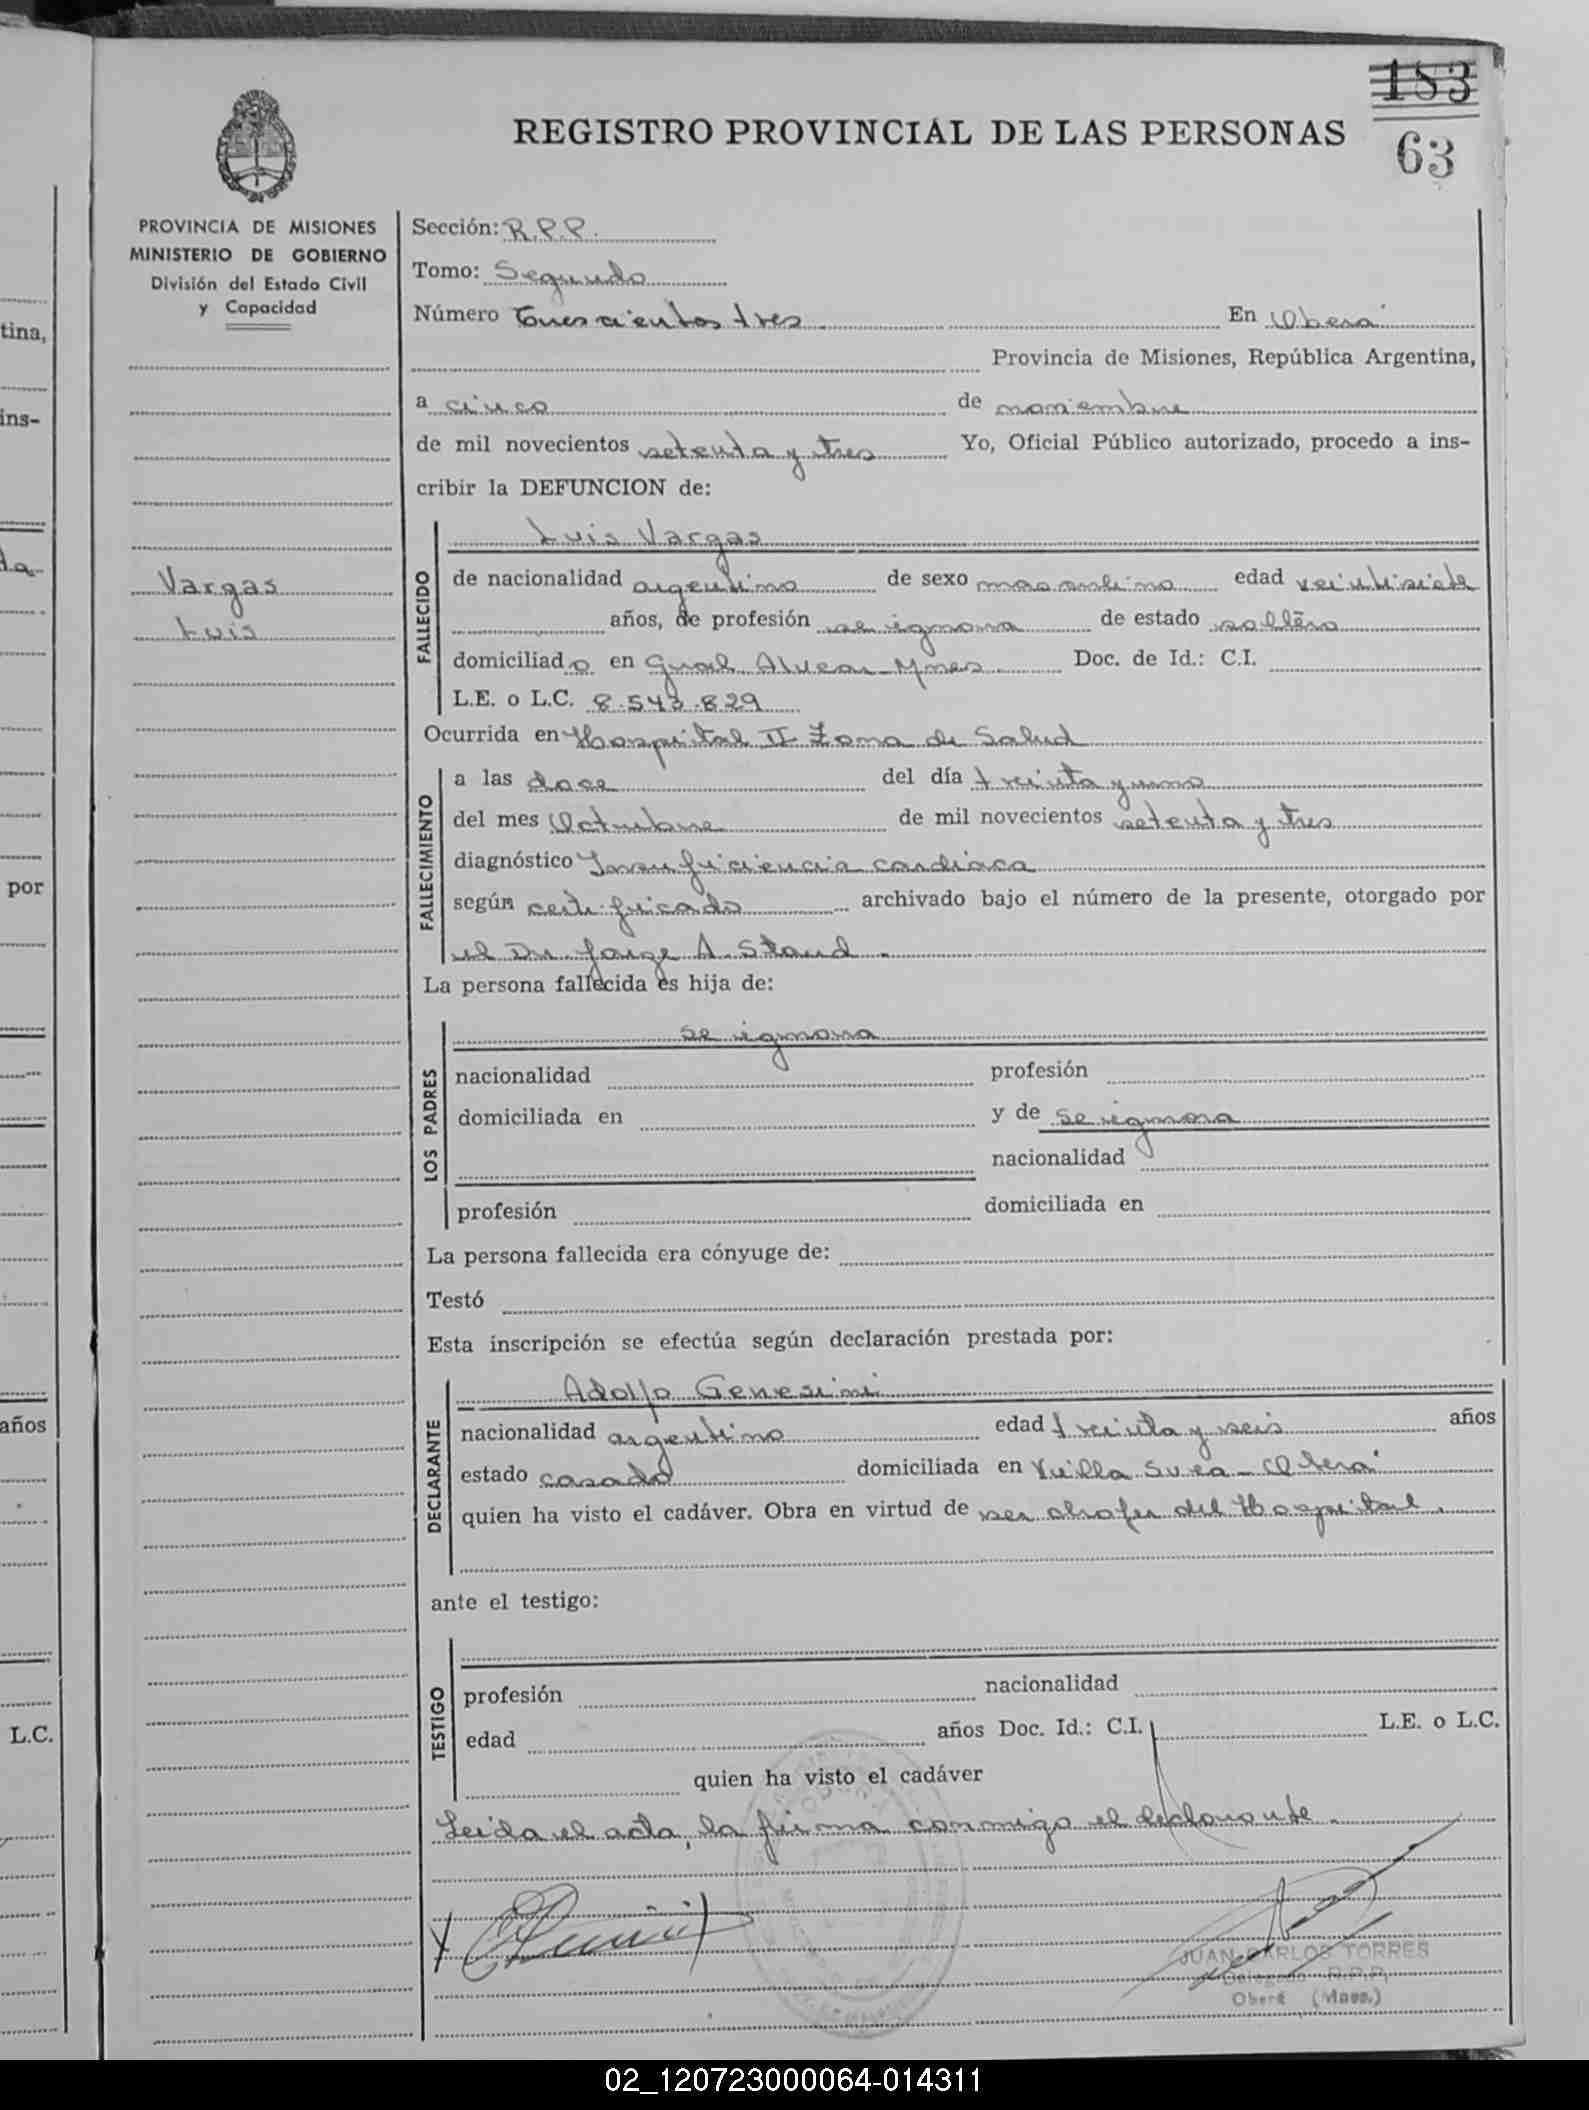 183
63
REGISTRO PROVINCIAL DE LAS PERSONAS
PROVINCIA DE MISIONES
MINISTERIO DE GOBIERNO
División del Estado Civil
y Capacidad
Vargas
Luis
Sección: R.P.P.
Tomo: Segundo
Número Trescientos tres En Oberá
Provincia de Misiones, República Argentina,
a cinco de noviembre
de mil novecientos setenta y tres Yo, Oficial Público autorizado, procedo a ins-
cribir la DEFUNCION de:
FALLECIDO
Luis Vargas
de nacionalidad argentino de sexo masculino edad veintisiete
años, de profesión se ignora de estado soltero
domiciliado en Gral Alvear - Mnes Doc. de Id.: C.I.
L.E. o L.C. 8.543.829
Ocurrida en Hospital II Zona de Salud
FALLECIMIENTO
a las doce del día treinta y uno
del mes Octubre de mil novecientos setenta y tres
diagnóstico Insuficiencia cardiaca
según certificado archivado bajo el número de la presente, otorgado por
el Dr. Jorge A. Staud.
La persona fallecida es hija de:
LOS PADRES
se ignora
nacionalidad profesión
domiciliada en y de se ignora
nacionalidad
profesión domiciliada en
La persona fallecida era cónyuge de:
Testó
Esta inscripción se efectúa según declaración prestada por:
DECLARANTE
Adolfo Genesini
nacionalidad argentino edad treinta y seis años
estado casado domiciliada en Villa Svea - Oberá
quien ha visto el cadáver. Obra en virtud de ser chofer del Hospital.
ante el testigo:
TESTIGO
profesión nacionalidad
edad años Doc. Id.: C.I. L.E. o L.C.
quien ha visto el cadáver
Leida el acta, la firma conmigo el declarante.
JUAN CARLOS TORRES
Delegado R.P.P.
Oberá (Mnes.)
tina,
ins-
por
años
L.C.
02_120723000064-014311